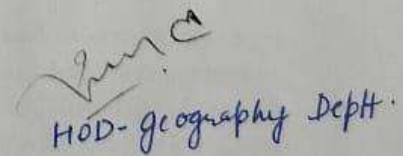 HOD- geography Deptt.